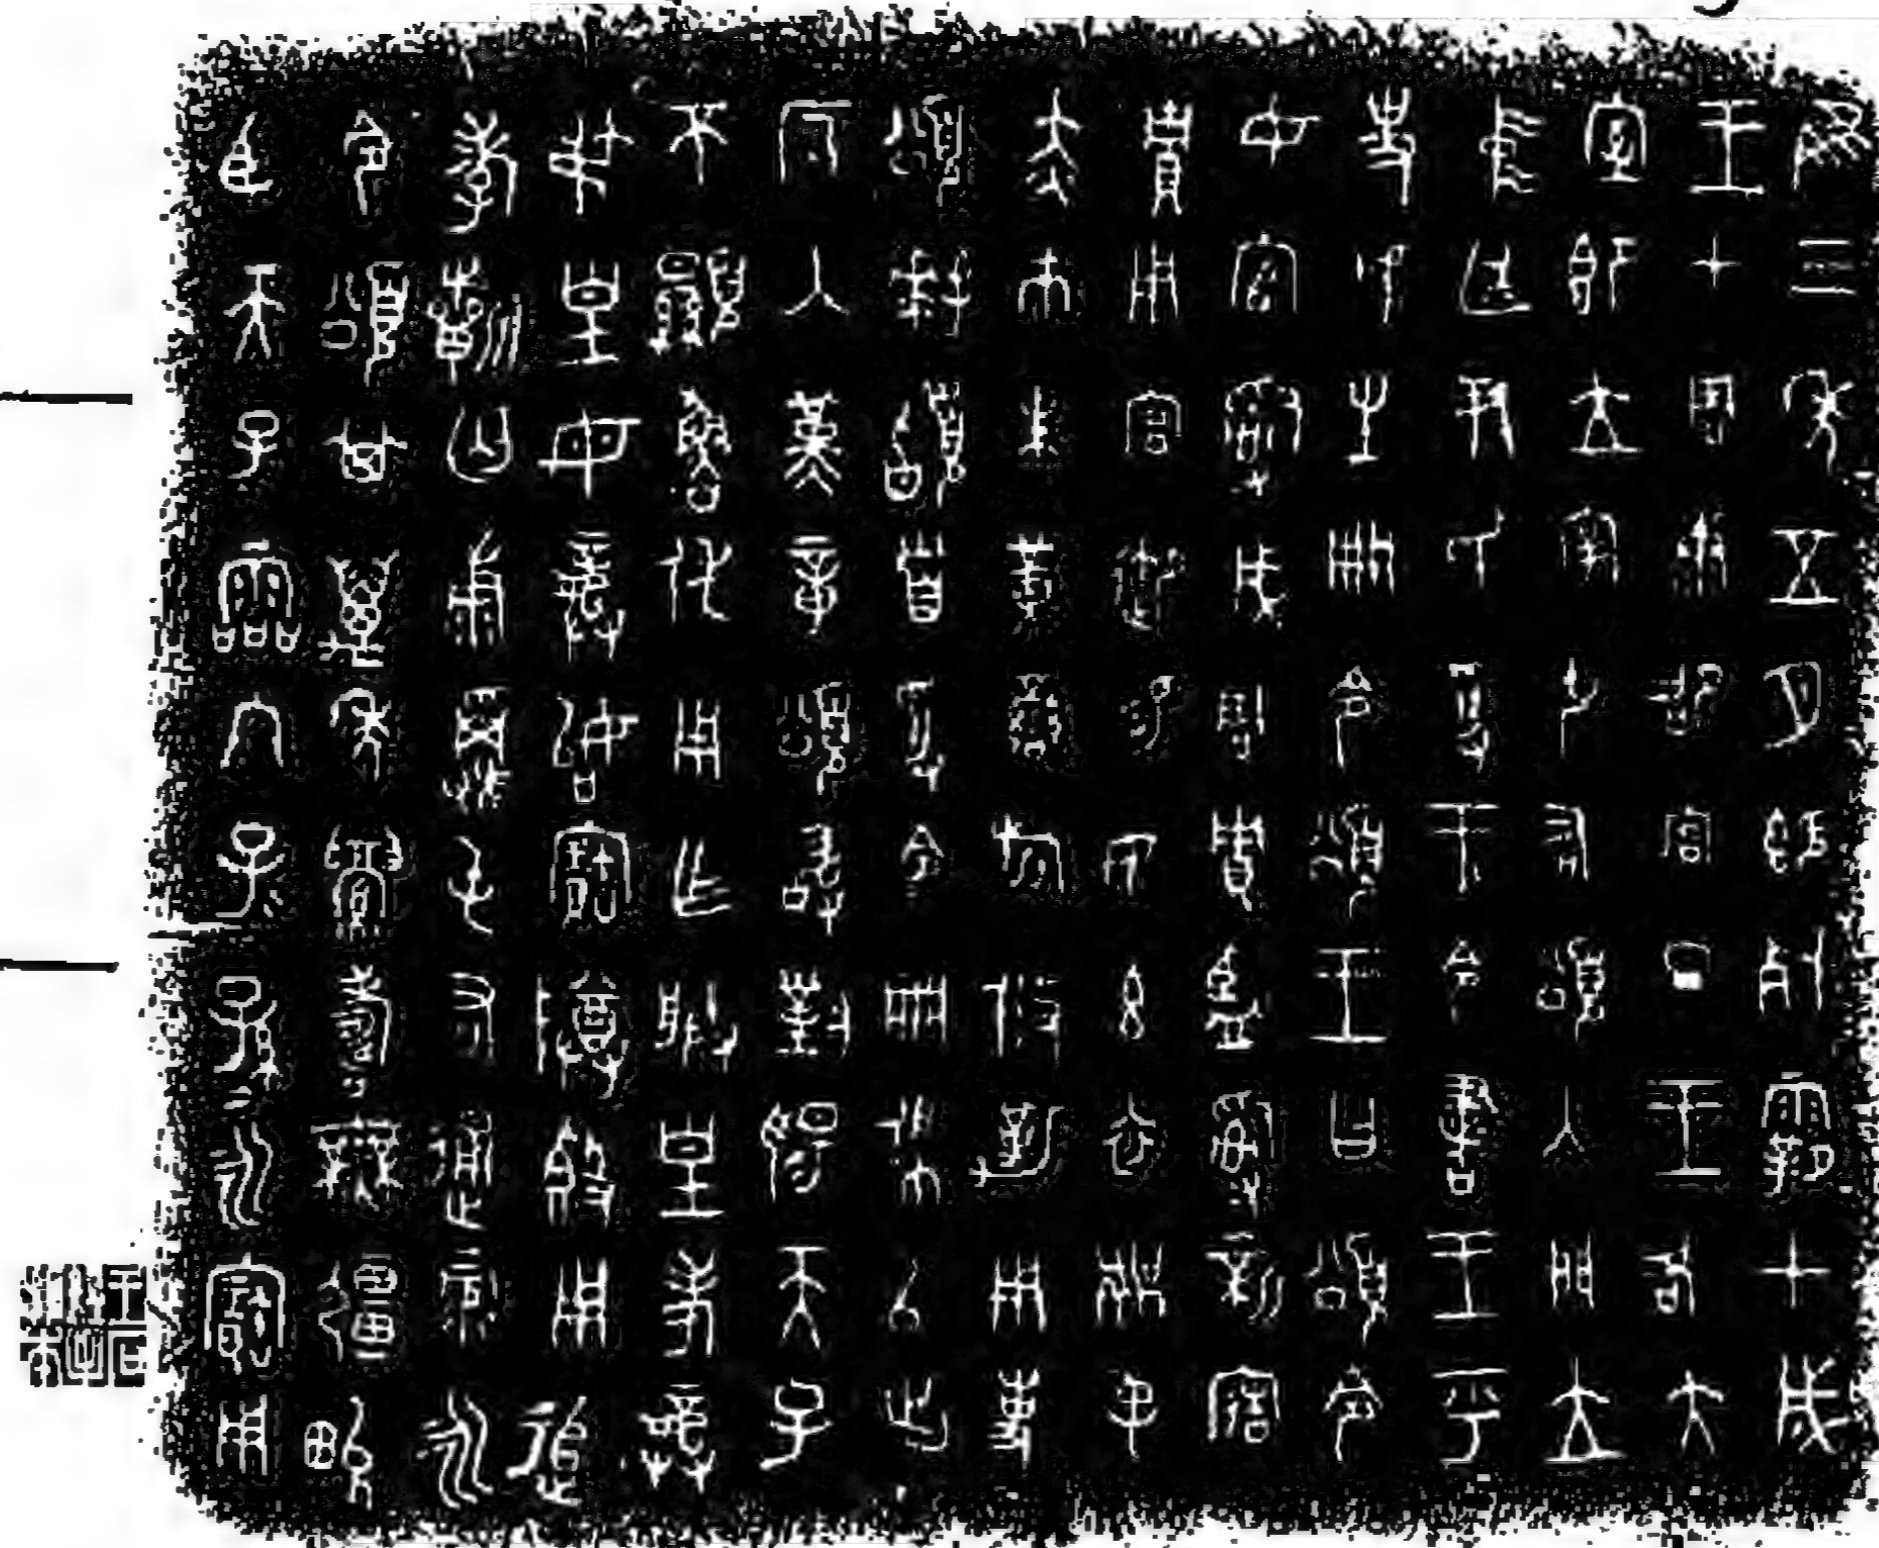 隹三年五月既死霸甲戌
王才周康邵宮旦王各大
室即立宰引右頌入門立
中廷尹氏受王令書王乎
史虢生冊令頌王曰頌令
女官𤔲成周貯監𤔲新造
貯用宮御易女玄衣黹屯
赤巿朱黃䜌旂攸勒用事
頌拜𩒨首受令冊佩以出
反入堇章頌敢對揚天子
不顯魯休用乍朕皇考龏
弔皇母龏始寶尊鼎用追
孝𣄨匄康屯右通彔永
令頌其萬年眉壽無疆畯
臣天子霝冬子孫永寶用